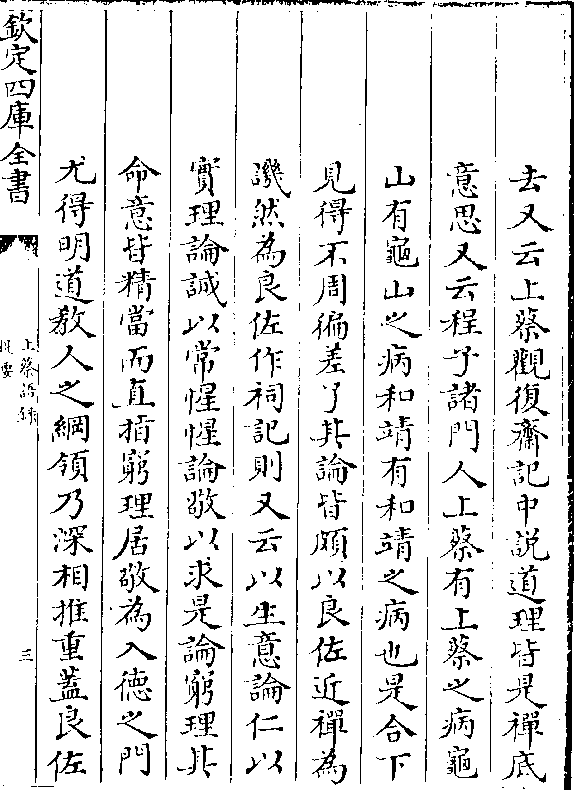 去又云上蔡觀復齋記中説道理皆是禪底
意思又云程子諸門人上蔡有上蔡之病龜
山有龜山之病和靖有和靖之病也是合下
見得不周徧差了其論皆頗以良佐近禪為
譏然為良佐作祠記則又云以生意論仁以
實理論誠以常惺惺論敬以求是論窮理其
命意皆精當而直指窮理居敬為入德之門
尤得明道教人之綱領乃深相推重蓋良佐
欽定四庫全書
上蔡語録
提要
三